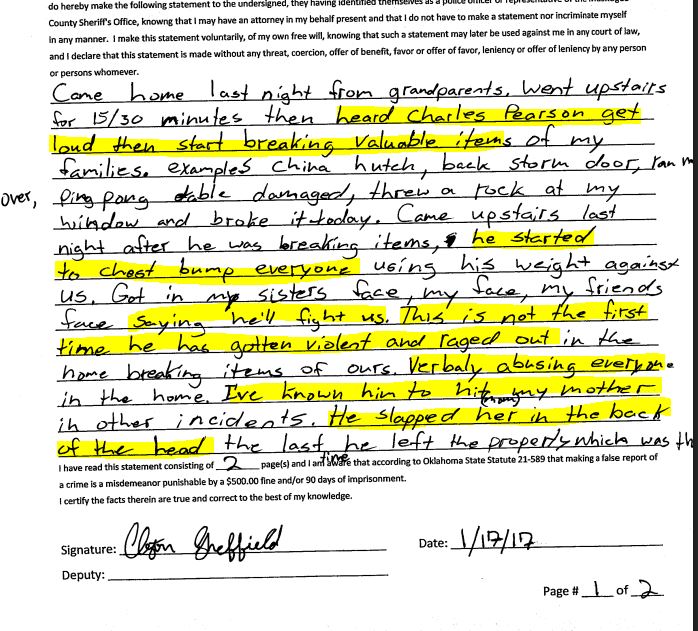 do hereby make the following statement to the undersigned, they having identified themselves as a police officer or representative of the
County Sheriff's Office, knowng that I may have an attorney in my behalf present and that I do not have to make a statement nor incriminate myself
in any manner. I make this statement voluntarily, of my own free will, knowing that such a statement may later be used against me in any court of law,
and I declare that this statement is made without any threat, coercion, offer of benefit, favor or offer of favor, leniency or offer of leniency by any person
or persons whomever.
Came home last night from grandparents. Went upstairs
for 15/30 minutes then heard Charles Pearson get
loud then start breaking valuable items of my
families. examples China hutch, back storm door, ran
over, Ping pong table damaged, threw a rock at my
window and broke it today. Came upstairs last
night after he was breaking items, he started
to chest bump everyone using his weight against
us. Got in my sisters face, my face, my friends
face saying he'll fight us. This is not the first
time he has gotten violent and raged out in the
home breaking items of ours. Verbaly abusing everyone
in the home. I've known him to hit my mother
in other incidents. He slapped her in the back
of the head the last he left the property which was
time
I have read this statement consisting of 2 page(s) and I am aware that according to Oklahoma State Statute 21-589 that making a false report of
a crime is a misdemeanor punishable by a $500.00 fine and/or 90 days of imprisonment.
I certify the facts therein are true and correct to the best of my knowledge.
Signature: Sheffield Date: 1/17/17
Deputy:
Page # 1 of 2